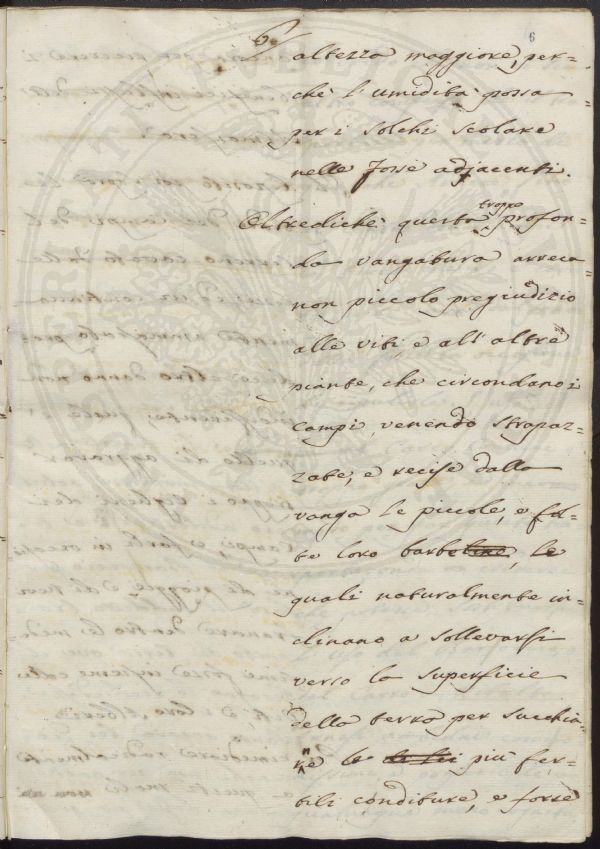 6
6.
altezza maggiore, per=
chè l'umidità possa
per i solchi scolare
nelle fosse adjacenti.
Oltrediche questa troppo profon=
da vangatura arreca
non piccolo pregiudizio
alle viti, e all'altre
piante, che circondano i
campi, venendo strapaz=
zate, e recise dalla
vanga le piccole, e fol=
te loro barbetine, le
quali naturalmente in=
clinano a sollevarsi
verso la superficie
della terra per succhia=
rne le di lei più fer=
tili conditure, e forse